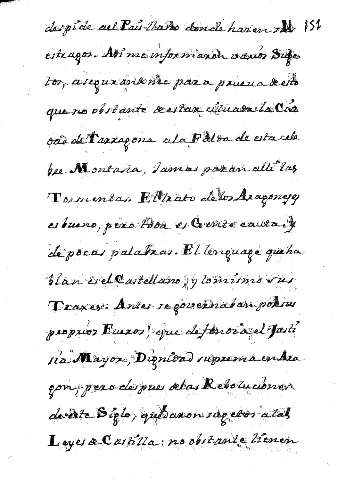 despide del País llano donde hacen mil 151
estragos. Asi me informaron varios Suge
tos, asegurandome para prueva de esto
que no obstante de estar situada la Ciu
dad de Tarazona a la Falda de esta cele
bre Montaña, jamas paran alli las
Tormentas. El trato de los Aragoneses
es bueno, pero toda es Gente cauta, y
de pocas palabras. El lenguage que ha
blan es el Castellano, y lo mismo sus
Traxes. Antes se governaban por sus
proprios Fueros, que defendia el Justi
sia Mayor, Dignidad suprema en Ara
gon; pero despues de las Reboluciones
de este Siglo, quedaron sugetos a las
Leyes de Castilla: no obstante tienen